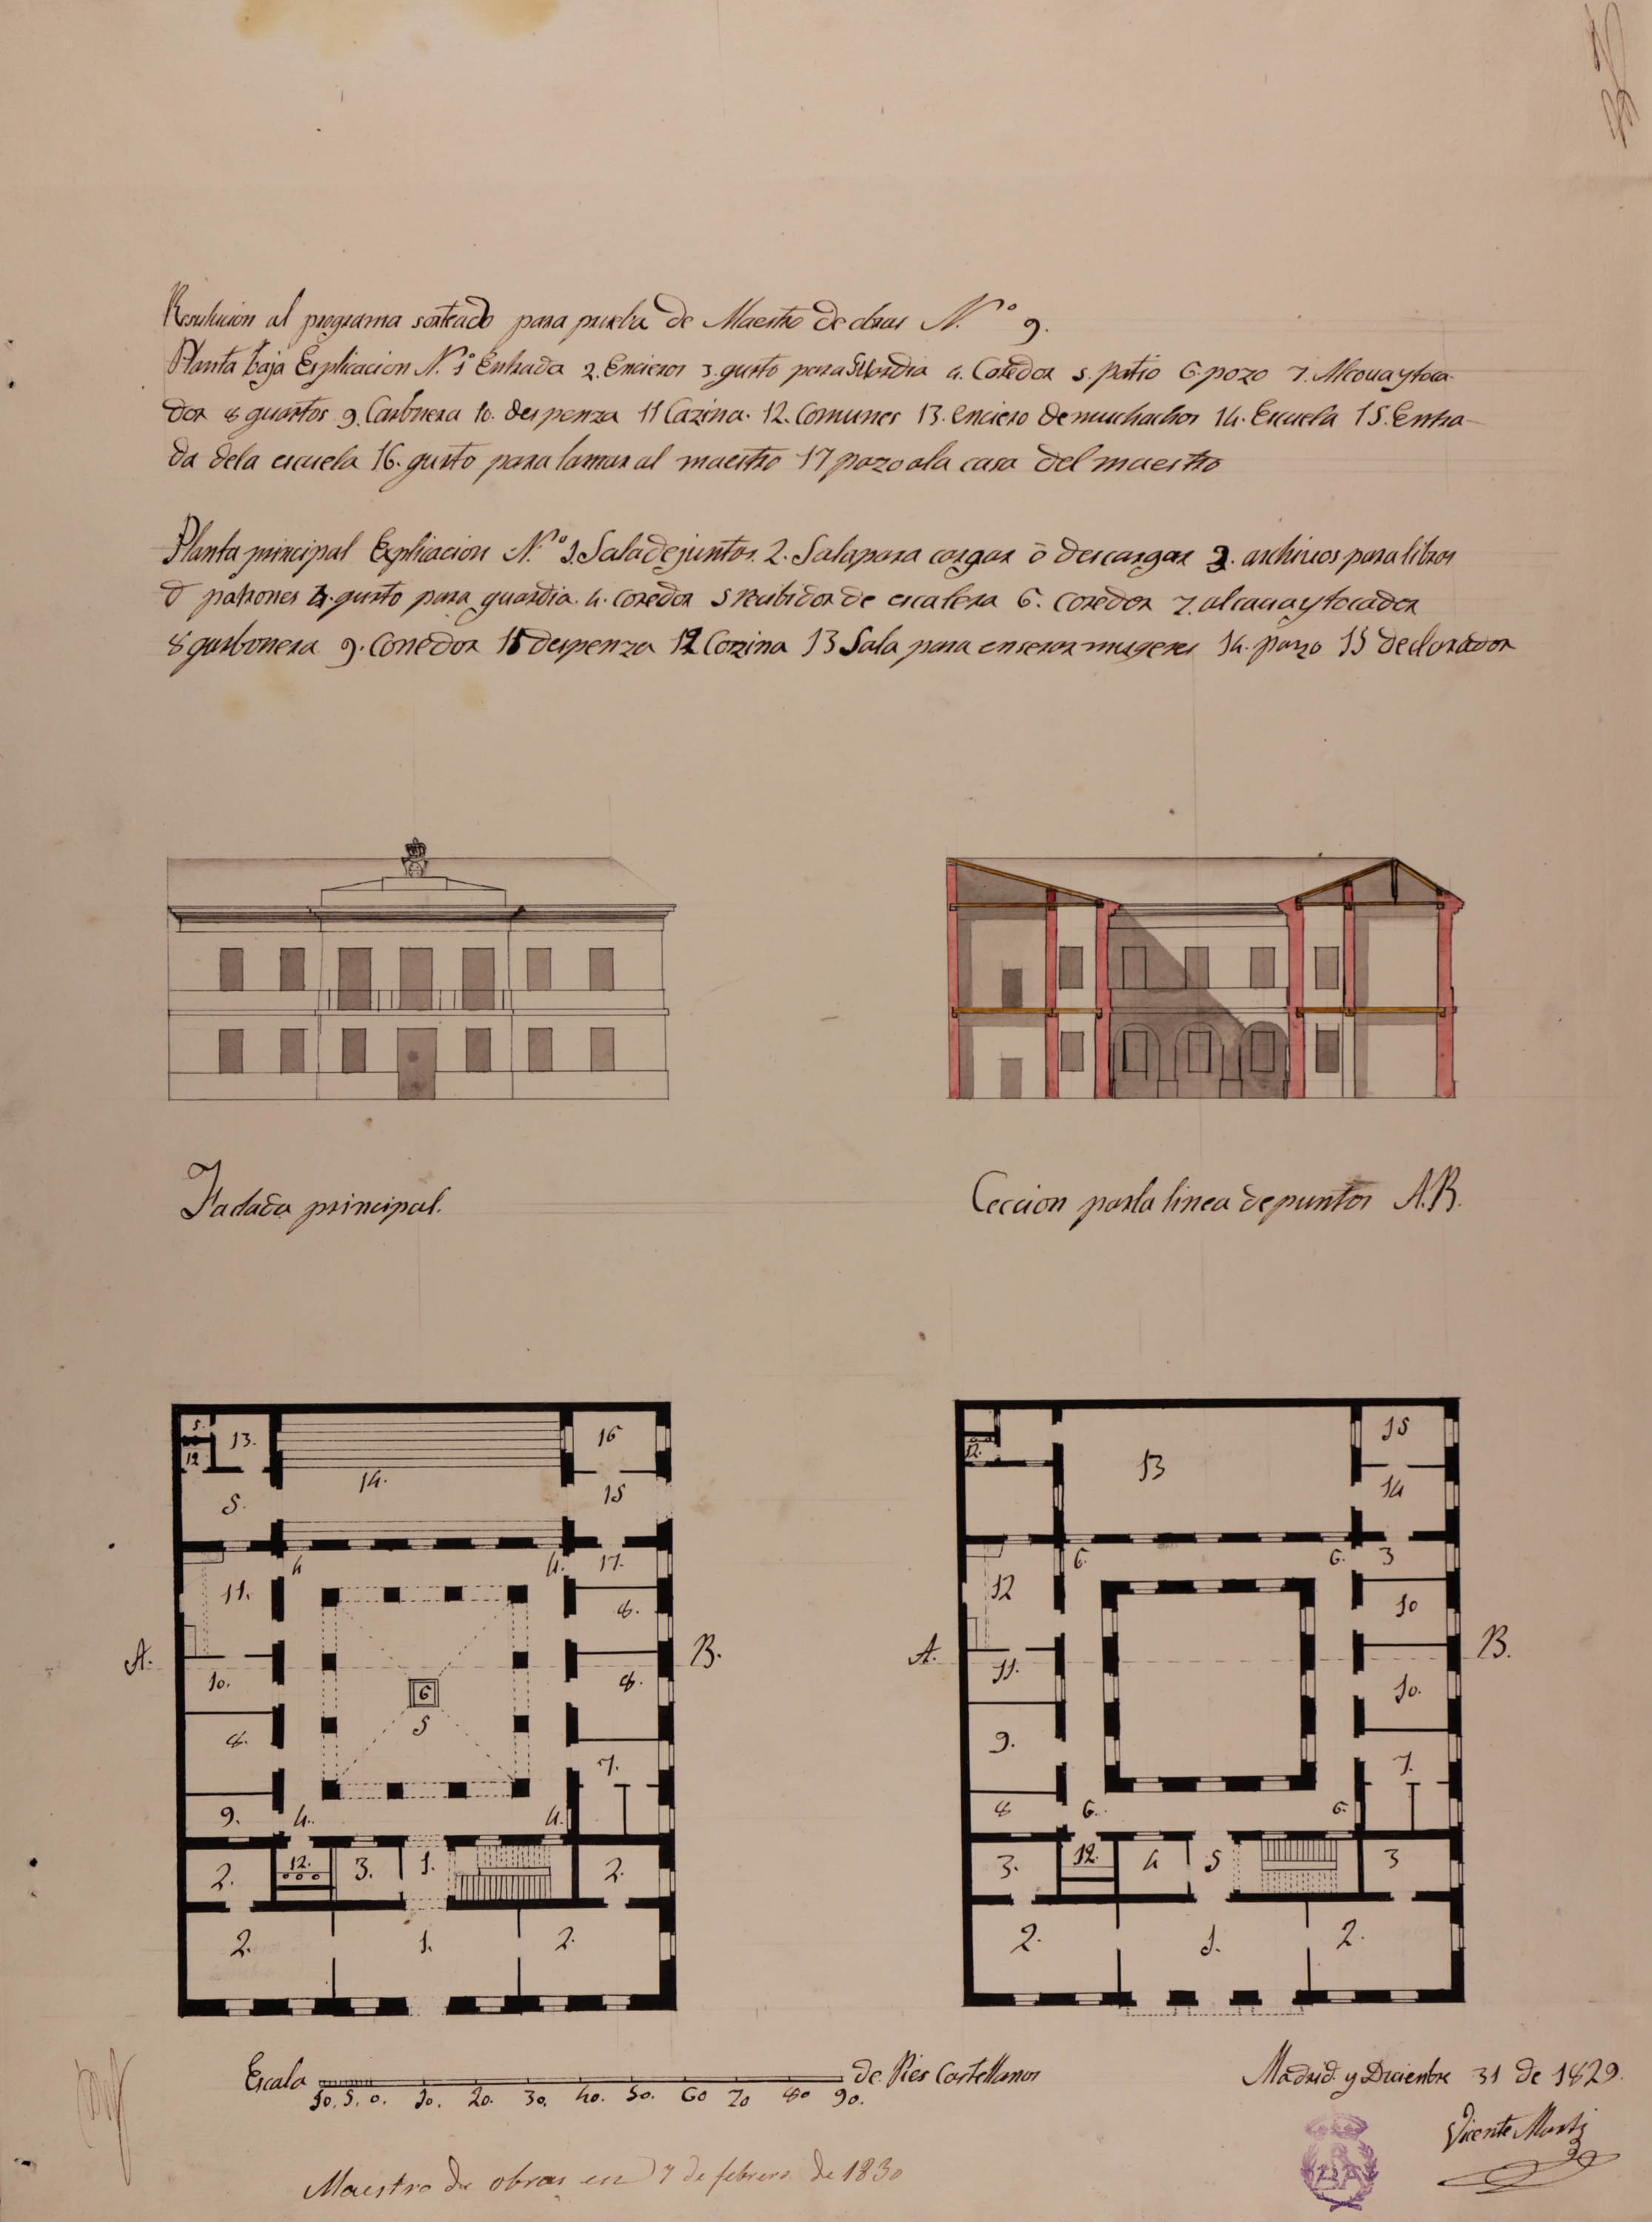 Resulucion al programa sorteado para prueba de Maestro de obras N.º 9.
Planta baja Esplicacion N.º 1 Entrada 2. Encieros 3. gusto para Guardia 4. Coredor 5. patio 6. pozo 7. Alcoua y toca-
dor 8 guartos 9. Carbnera 10. despenza 11 Cozina. 12. Comunes 13. enciero de muchachos 14. Escuela 15. Entra-
da dela escuela 16. gusto para lamar al maestro 17 pazo ala casa del maestro
Planta principal Esplicacion N.º 1. Sala de juntas. 2. Sala para cargar ō descargar 3. archivos para libros
ō patrones 4. gusto para guardia. 4. coredor 5 recibidor de escalera 6. coredor 7. alcaua y tocador
8 garbonera 9. Comedor 11 despenza 12 Cozina 13 Sala para enserar mugeres 14. pazo 15 declarador
Fadada principal.
Ceccion porla linea de puntos A.B.
5. 13. 16
12 14. 15
5.
4 4. 17.
11. 8.
A. B.
10. 6 8.
8. 5
7.
9. 4. 4.
2. 12. 3. 1. 2.
2. 1. 2.
15
12. 13 14
6. 6. 3
12 10
A. B.
11. 10.
9.
7.
8 6. 6.
3. 12. 4 5 3
2. 1. 2.
Escala de Pies Castellanos
10. 5. 0. 10. 20. 30. 40. 50. 60 70 80 90.
Madrid y Diciembre 31 de 1829.
Vicente Marti
Maestro de obras en 7 de febrero de 1830